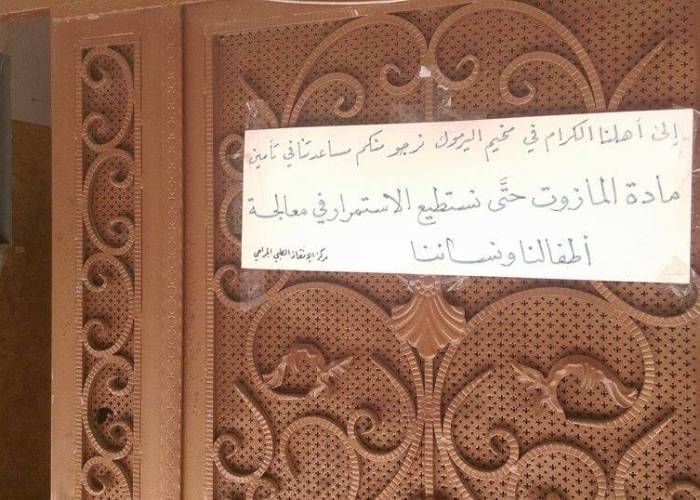 إلى أهلنا الكرام في مخيم اليرموك نرجو منكم مساعدتنا في تأمين
مادة المازوت حتَّى نستطيع الاستمرار في معالجة
أطفالنا ونسائنا
مركز الإنقاذ الطبي الجراحي